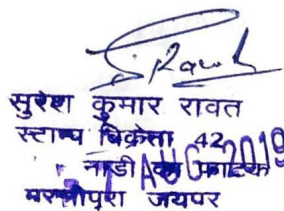 S Rawat
सुरेश कुमार रावत
स्टाम्प विक्रेता 42
नाडी का फाटक
AUG 2019
मुरलीपुरा जयपुर